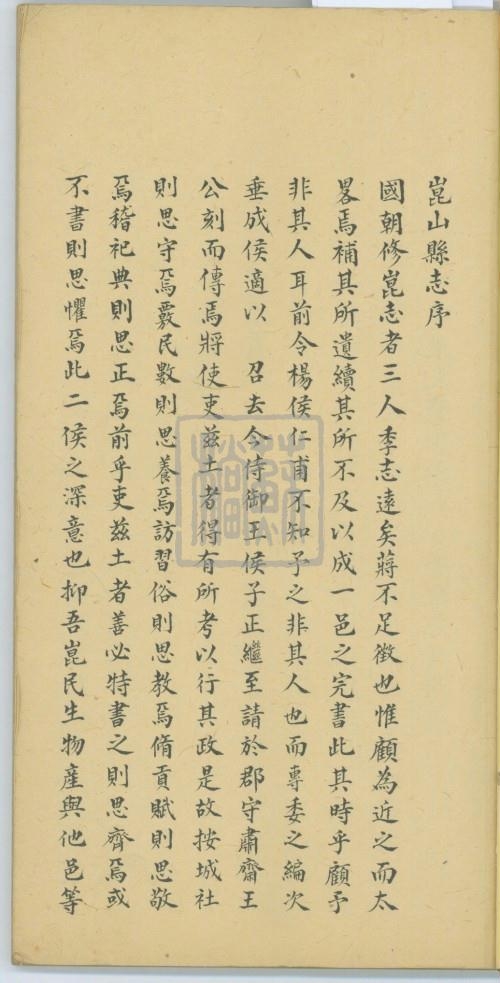 崑山縣志序
國朝修崑志者三人季志遠矣蔣不足徵也惟顧為近之而太
畧焉補其所遺續其所不及以成一邑之完書此其時乎顧予
非其人耳前令楊侯仁甫不知予之非其人也而專委之編次
垂成侯適以 召去今侍御王侯子正繼至請於郡守肅齋王
公刻而傳焉將使吏兹土者得有所考以行其政是故按城社
則思守焉覈民數則思養焉訪習俗則思教焉脩貢賦則思敬
焉稽祀典則思正焉前乎吏兹土者善必特書之則思齊焉或
不書則思懼焉此二侯之深意也抑吾崑民生物産與他邑等